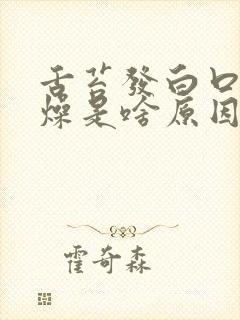 舌苔發白口
燥是啥原因
霍奇森